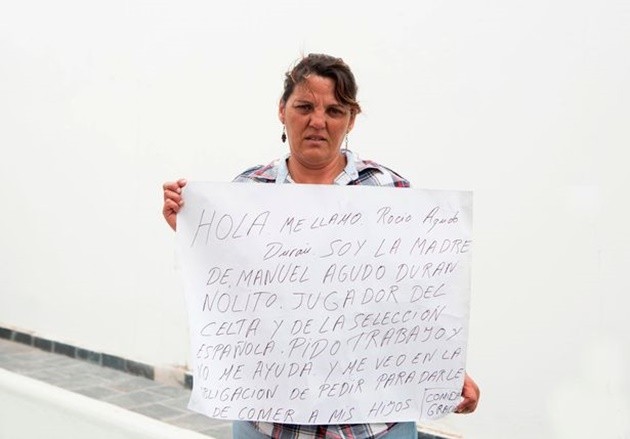 HOLA ME LLAMO. Rocio Agudo
Duran. SOY LA MADRE
DE. MANUEL AGUDO DURAN
NOLITO. JUGADOR DEL
CELTA Y DE LA SELECCION
ESPAÑOLA. PIDO TRABAJO Y
NO ME AYUDA Y ME VEO EN LA
OBLIGACION DE PEDIR PARA DARLE
DE COMER A MIS HIJOS
COMIDA
GRACIAS